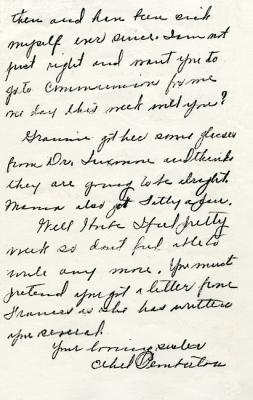 them and have been sick
myself ever since. I am not
just right and want you to
go to Communion for me
one day this week will you?
Grannie got her some glasses
from Dr. and thinks
they are going to be alright.
Mama also got a pair.
Well I feel pretty
weak so don't feel able to
write any more. You must
pretend you got a letter from
Frances as she has written
you several.
Your loving sister
Ethel Pemberton